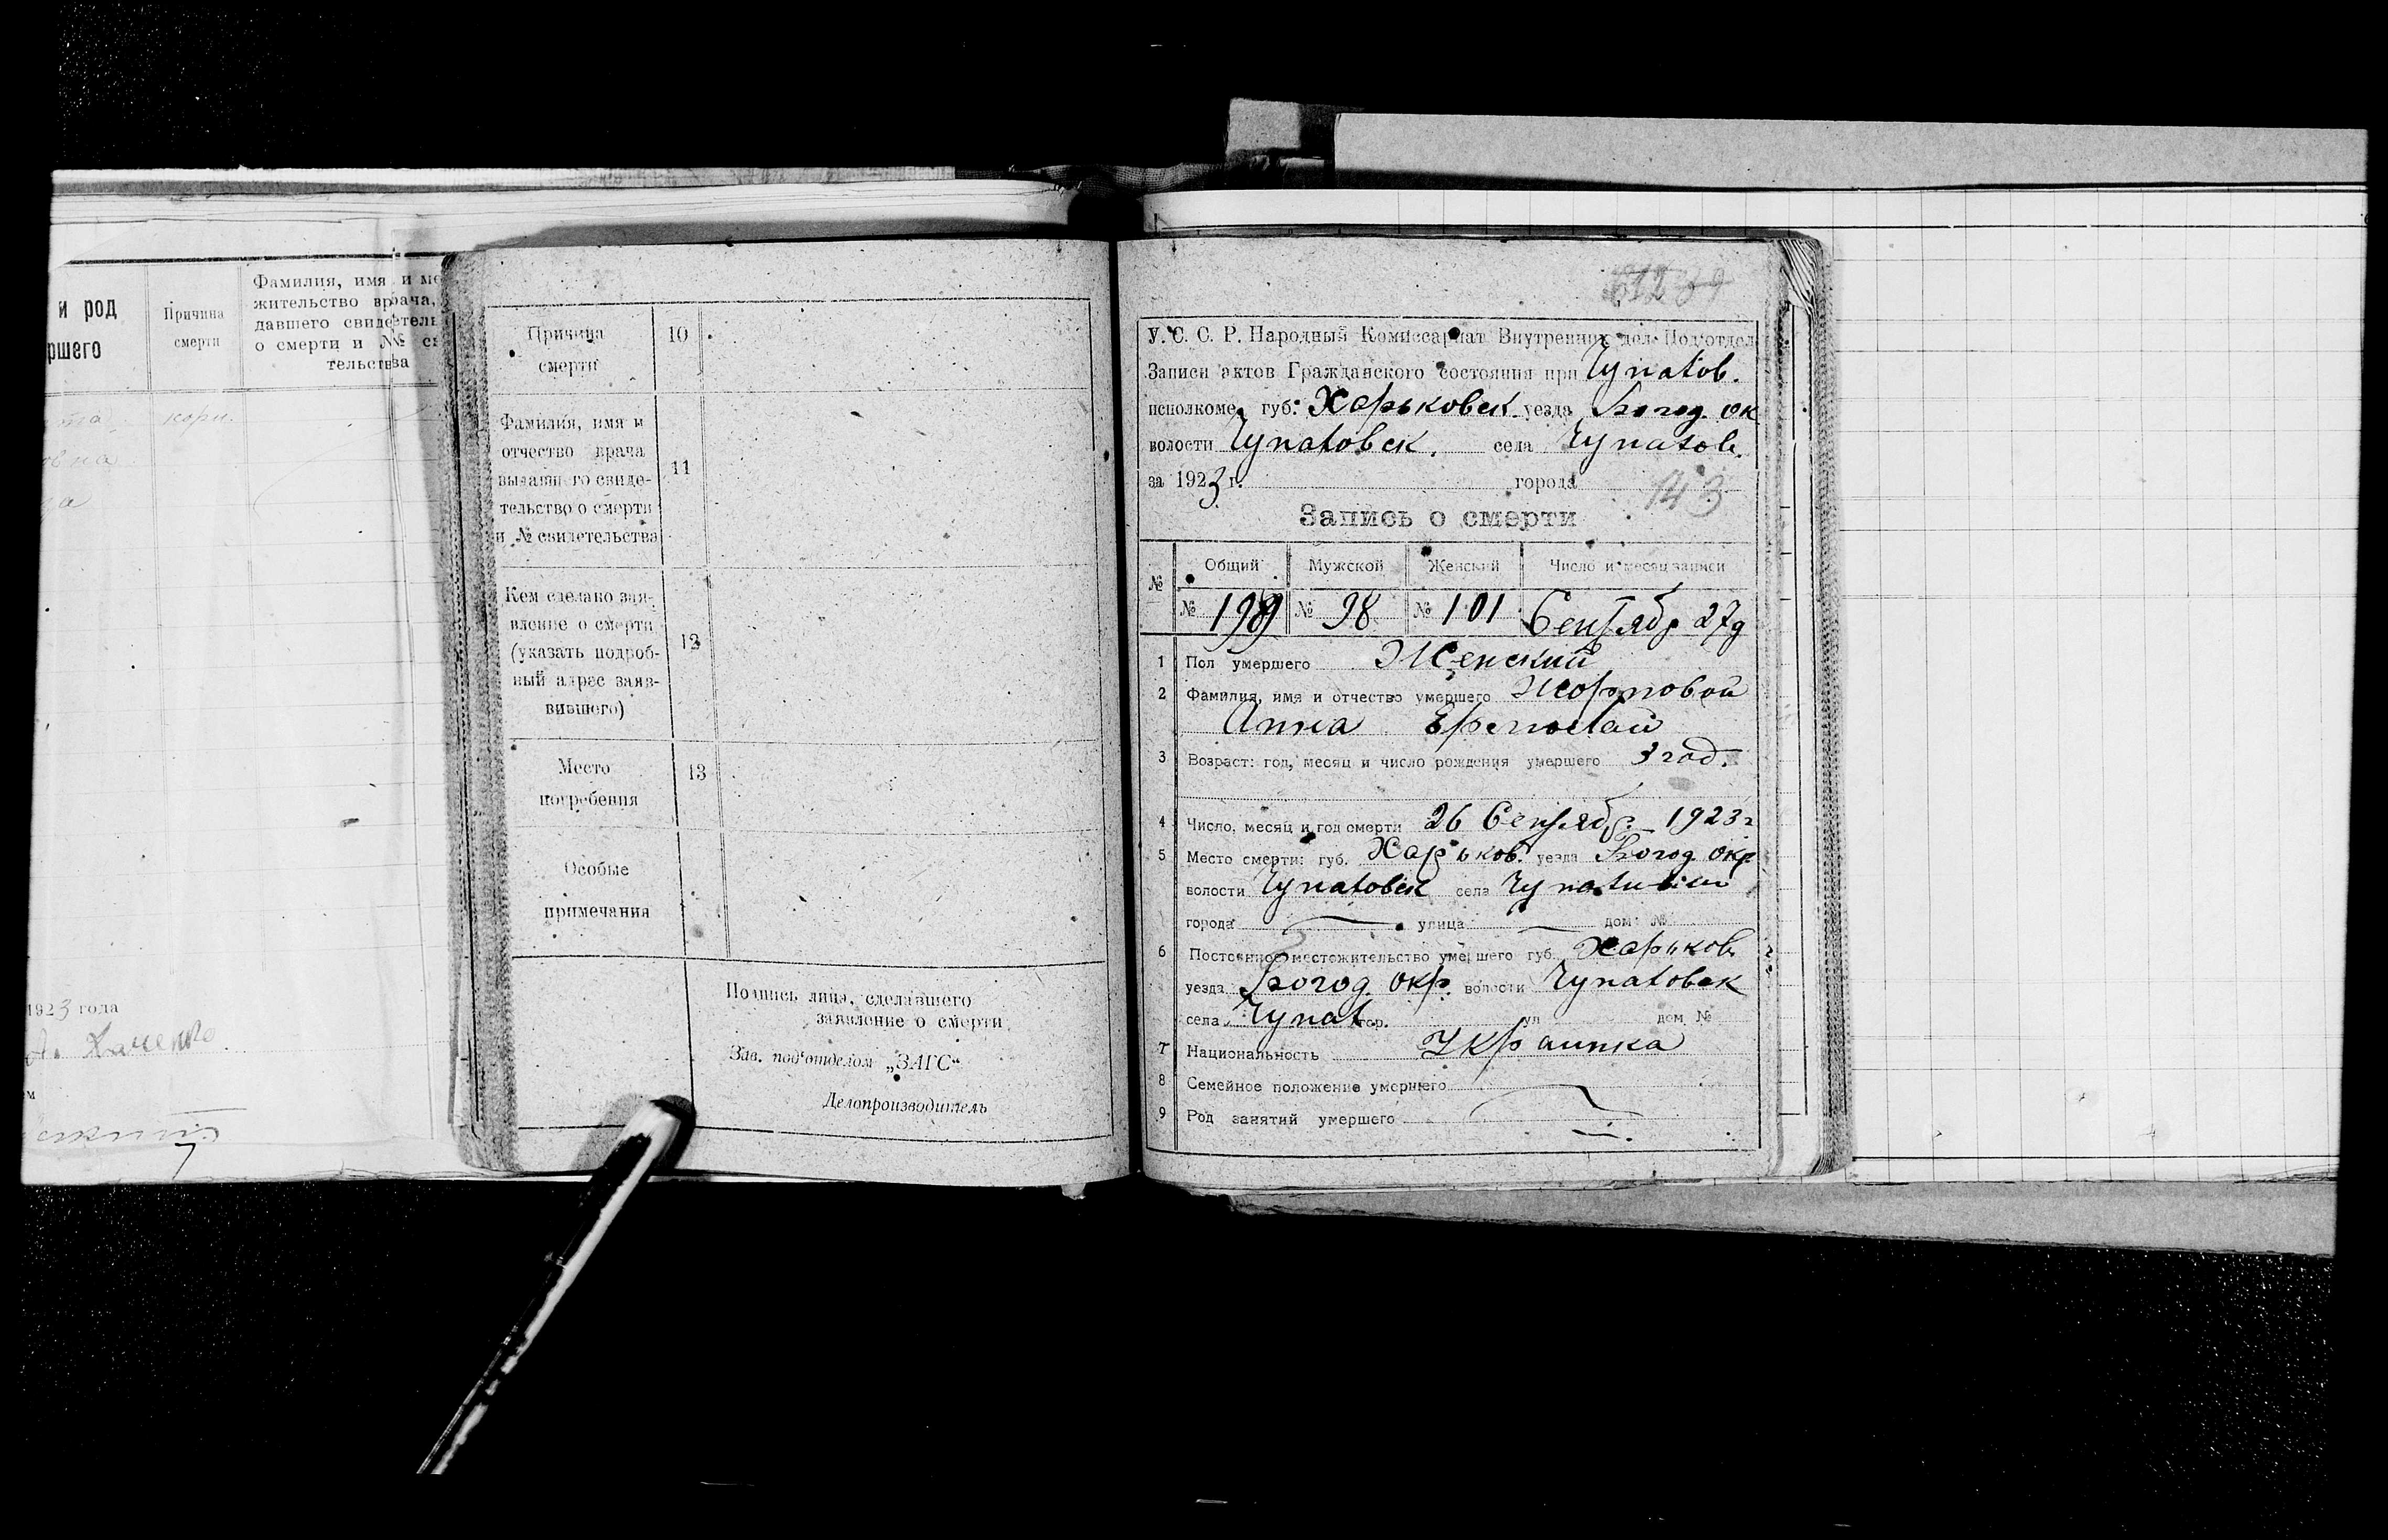 и род
ршего
Причина
смерти
Фамилия, имя и ме
жительство врача,
давшего свидетель
о смерти и № св
тельства
кори.
1923 года
Причина
смерти
10
Фамилия, имя и
отчество врача
выдавшего свиде-
тельство о смерти
и № свидетельства
11
Кем сделано зая-
вление о смерти
(указать подроб-
ный адрес заяв-
вившего)
12
Место
погребения
13
Особые
примечания
Подпись лица, сделавшего
заявление о смерти
Зав. под'отделом „ЗАГС“
Делопроизводитель
У. С. С. Р. Народный Комиссариат Внутренних дел Под'отдел
Записи актов Гражданского состояния при Чупатов.
исполкоме, губ. Харьковск. уезда Богод. ок
волости Чупатовск. села Чупатов.
за 1923 г. города 143
Запись о смерти
№ Общий Мужской Женский Число и месяц записи
№ 199 № 98 № 101 Сентябр 27д
1 Пол умершего Женский
2 Фамилия, имя и отчество умершего
Анна
3 Возраст: год, месяц и число рождения умершего 3 год.
4 Число, месяц и год смерти 26 Сентябр. 1923 г
5 Место смерти: губ. Харьков. уезда Богод. окр
волости Чупатовск села
города улица дом №
6 Постоянное местожительство умершего губ. Харьков
уезда Богод. окр. волости Чупатовск
села Чупат. гор. ул дом №
7 Национальность Украинка
8 Семейное положение умершего
9 Род занятий умершего